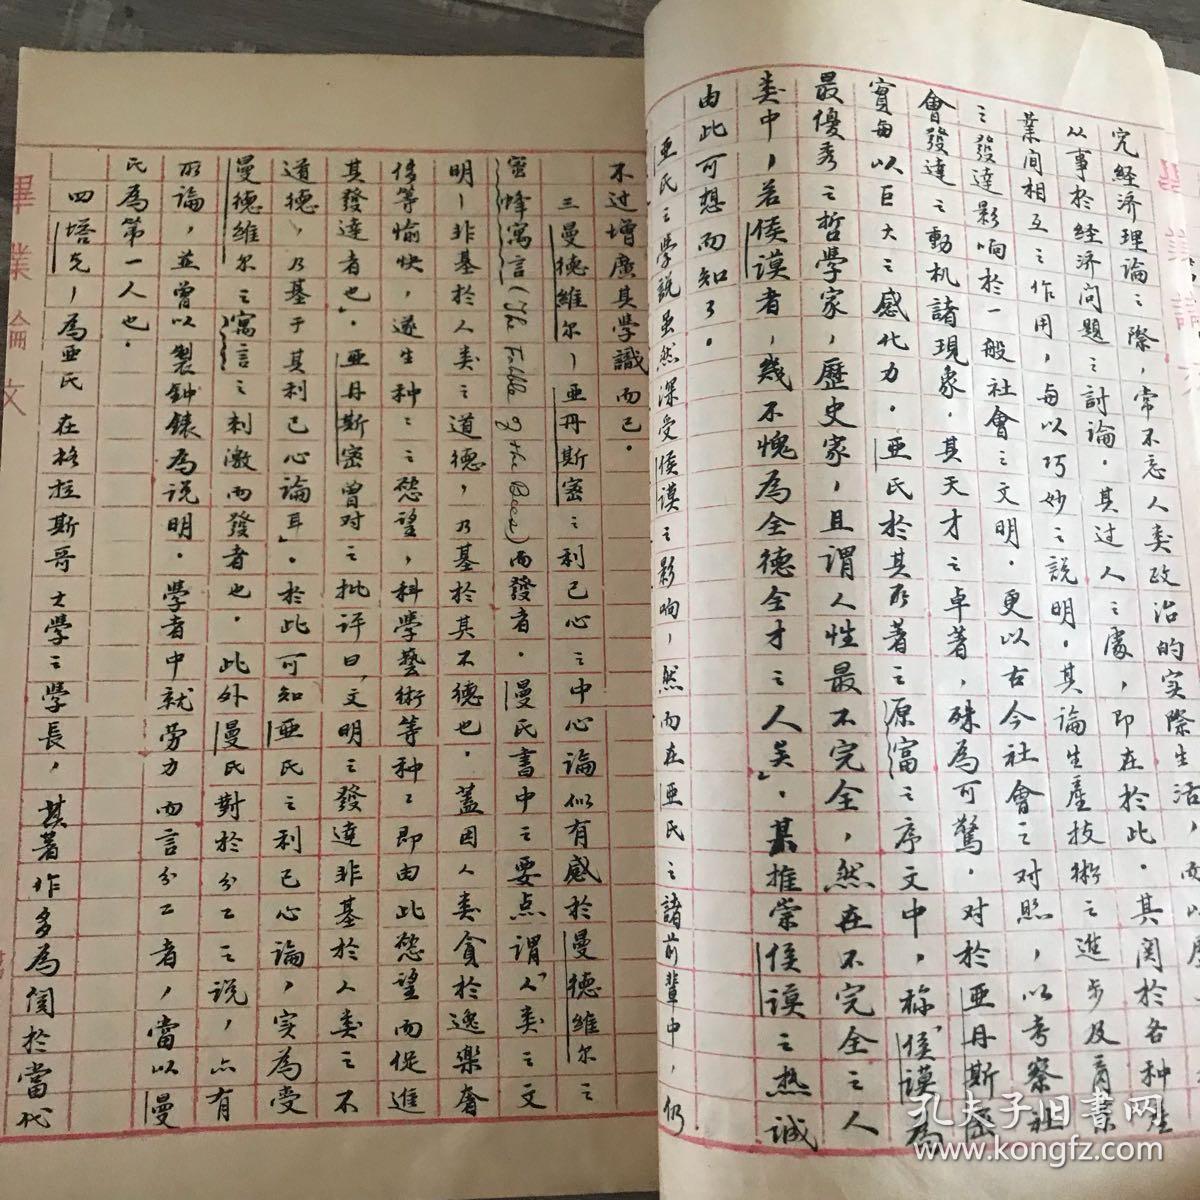 究経济理論之際，常不忘人类政治的实際生活，而以
从事於経济问题之討論．其过人之處，即在於此．其関於各种生
業间相互之作用，每以巧妙之説明．其論生產技術之進步及商業
之發達影响於一般社會之文明．更以古今社會之对照，以考察社
會發達之動机諸現象．其天才之卓著，殊為可驚．对於亜丹斯密
實每以巨大之感化力．亜氏於其所著之原富之序文中，称「侯謨為
最優秀之哲學家，歷史家，且謂人性最不完全，然在不完全之人
类中，若侯謨者，幾不愧為全德全才之人矣」．其推崇侯謨之热誠
由此可想而知了．
亜氏之學説虽然深受侯謨之影响，然而在亜氏之諸前輩中，仍
不过增廣其學識而已．
三曼德維尔，亜丹斯密之利己心之中心論似有感於曼德維尔之
蜜蜂寓言(The Fable of the Bees)而發者．曼氏書中之要点謂「人类之文
明，非基於人类之道德，乃基於其不德也．蓋因人类貪於逸樂奢
侈等愉快，遂生种之之慾望，科學藝術等种之即由此慾望而促進
其發達者也」．亜丹斯密曾对之批评曰，「文明之發達非基於人类之不
道德，乃基于其利己心論耳」．於此可知亜氏之利己心論，实為受
曼德維尔之寓言之刺激而發者也．此外曼氏對於分工之説，亦有
所論，並曾以製鈡錶為说明．學者中就劳力而言分工者，當以曼
氏為第一人也．
四塔克，為亜氏在格拉斯哥大學之學長，其著作多為関於當代
畢業論文
孔夫子旧書网
www.kongfz.com